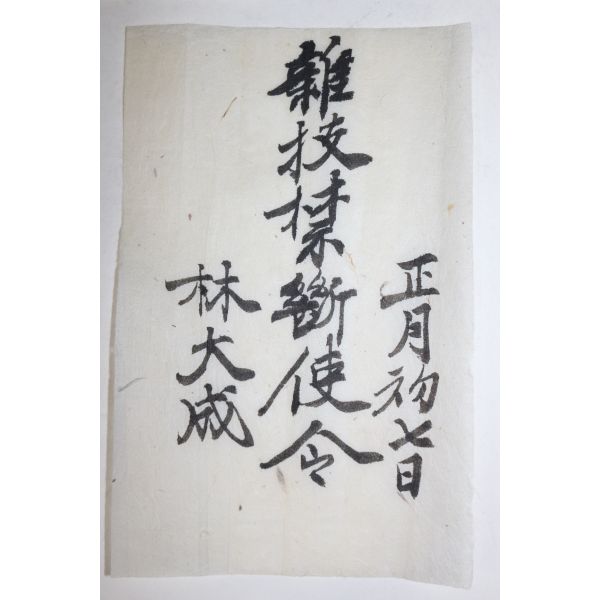 正月初七日
雜技禁斷使令
林大成